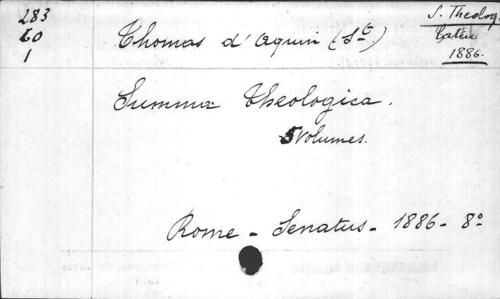 283
60
1
Thomas d'Aquin (St)
S. Theolog.
1886.
Summa Theologica.
5 Volumes.
Rome - Senatus - 1886 - 8°